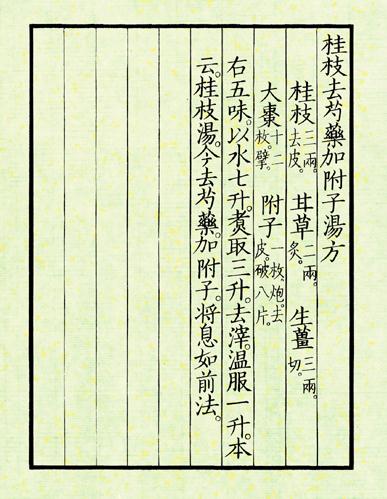 桂枝去芍藥加附子湯方
桂枝三兩。去皮。 甘草二兩。炙。 生薑三兩。切。
大棗十二枚。擘。 附子一枚。炮。去皮。破八片。
右五味。以水七升。煑取三升。去滓。温服一升。本
云。桂枝湯。今去芍藥。加附子。將息如前法。